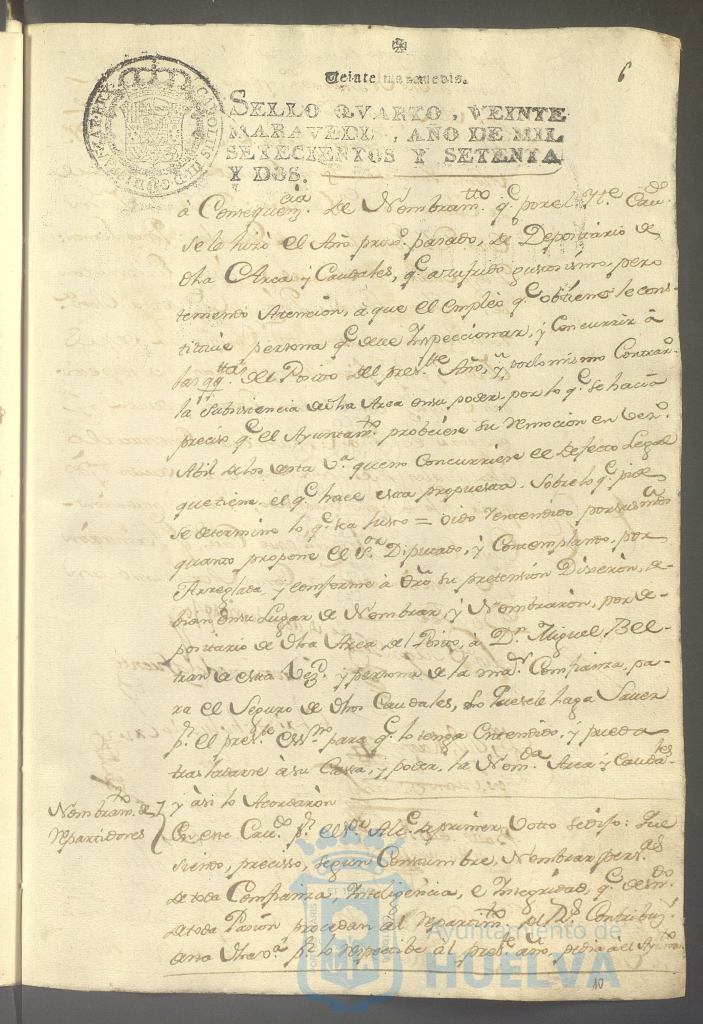 6
Veinte maravedis.
SELLO QVARTO, VEINTE
MARAVEDIS, AÑO DE MIL
SETECIENTOS Y SETENTA
Y DOS.
CAROLUS III D.G. HISPANIAR. REX
à Consequen.cia de Nombram.tto q.e por el Yt.e Cav.do
se le hizo el Año prox.o passado, de Depositario de
dha Arca y Caudales, q.e a sufrido gustosísimo, pero
teniendo Atención, à que el empleo q.e obtiene le cons-
tituie persona q.e deve Inspeccionar, y Concurrir à
las qq.ttas del Posito del pres.tte Año, y por lo mismo Contrar.
la subsistencia de dha Arca en su poder, por lo q.e se hacía
preciso q.e el Ayuntam.to probeiese su remoción en Vez.o
Abil de los desta V.a que no Concurriese el defecto Legal
que tiene el q.e hace esta propuesta. Sobre lo q.e pide
se determine lo q.e sea Justo = Oido Yentendido por sus m.des
quanto propone el S.or Diputado, y Contemplando, por
Arreglada, y conforme à dro su pretensión Dixerón, de-
bian en su Lugar de Nombrar, y Nombrarón, por de-
positario de dha Arca, del Posito, à D.n Miguel Bel-
tran de esta Vez.d y persona de la ma.or Confianza, pa-
ra el Seguro de dhos Caudales, Lo que se le haga Saver
p.r el pres.te ess.no para q.e lo tenga Entendido, y pueda
trasladarse à su Cassa, y poder, la Nom.da Arca y Cauda.les
y àsi lo Acordarón
Nombram.to de
repartidores
En este Cav.do p.r el S.or Alc.e de primer Votto se dijo: Que
siendo, precisso, segun Consttumbre, Nombrar pers.as
de toda Confianza, Inteligencia, e Integridad, q.e desn.do
de toda Pasión procedan al repartim.to del R.l Contribuz.n
en esta V.a p.r lo respectibo àl pres.te año, pedia al Ayuntam.
10
Ayuntamiento de
HUELVA